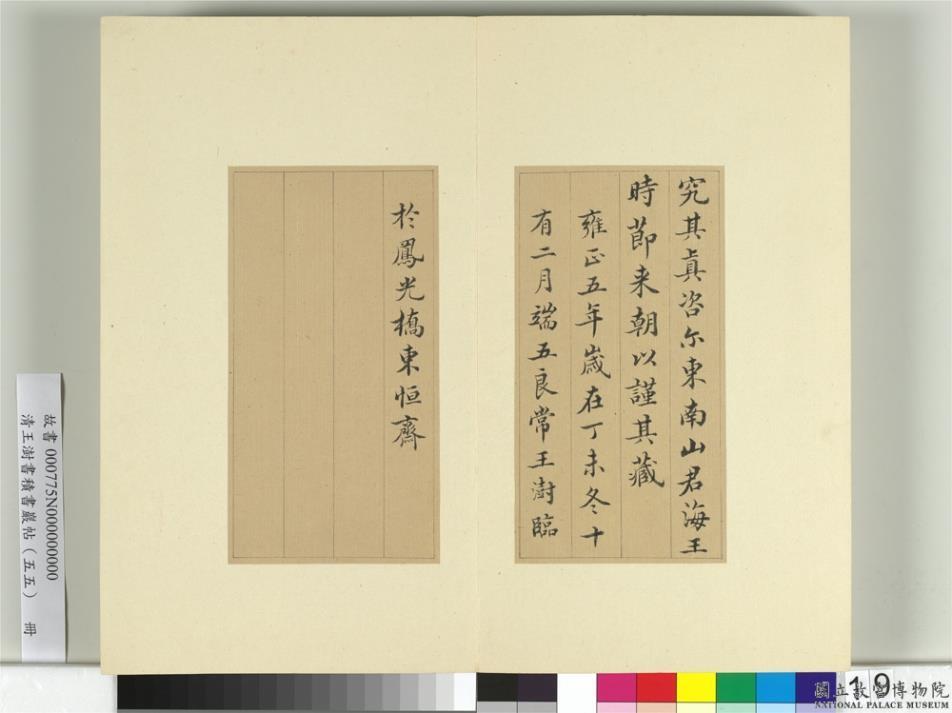 究其真咨尓東南山君海王
時節来朝以謹其藏
雍正五年歲在丁未冬十
有二月端五良常王澍臨
於鳳光橋東恒齋
故書 000775N000000000
清王澍書積書巖帖（五五） 冊
19
國立故宮博物院
NATIONAL PALACE MUSEUM